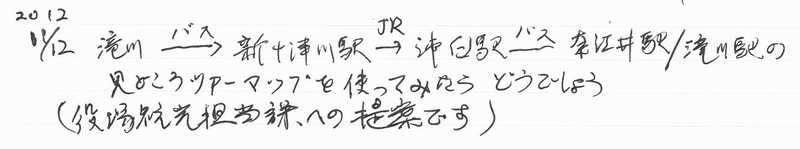 2012
11/12 滝川 バス→ 新十津川駅 JR→ 浦臼駅 バス→ 奈江井駅/滝川駅の
見どころツアーマップを使ってみたら どうでしょう
(役場観光担当課、への提案です)